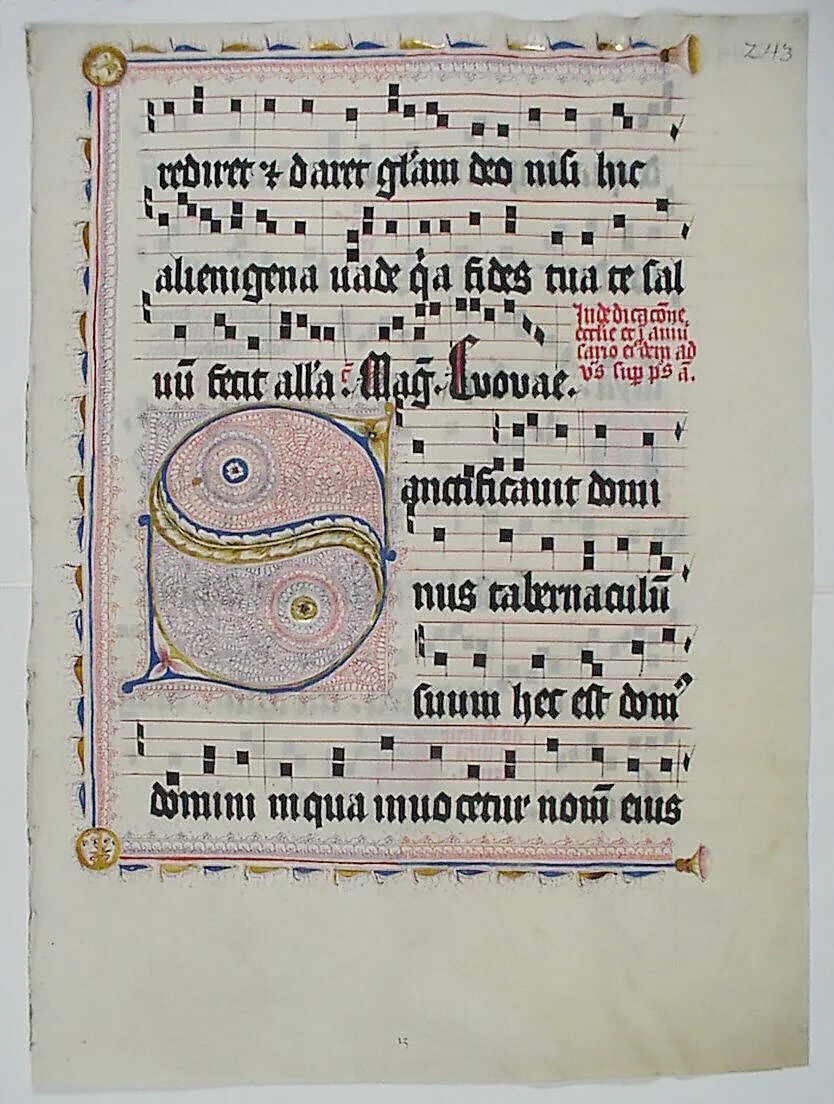 243
rediret ⁊ daret gl'am deo nisi hic
alienigena uade q̇a fides tua te sal
uū fecit all'a. Mag̅. Euouae.
In dedicacōne
ecclīe et ī anni
sario eiꝰdem ad
vs̄ sup̱ ps̄ a̅.
Sanctificauit domi
nus tabernaculū
suum hec est domꝰ
domini in qua inuocetur nom̄ eius